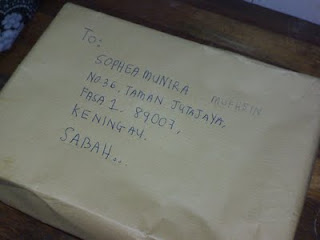 To:
SOPHEA MUNIRA MUEHSIN
NO 36, TAMAN JUTAJAYA,
FASA 1. 89007,
KENINGAU.
SABAH..